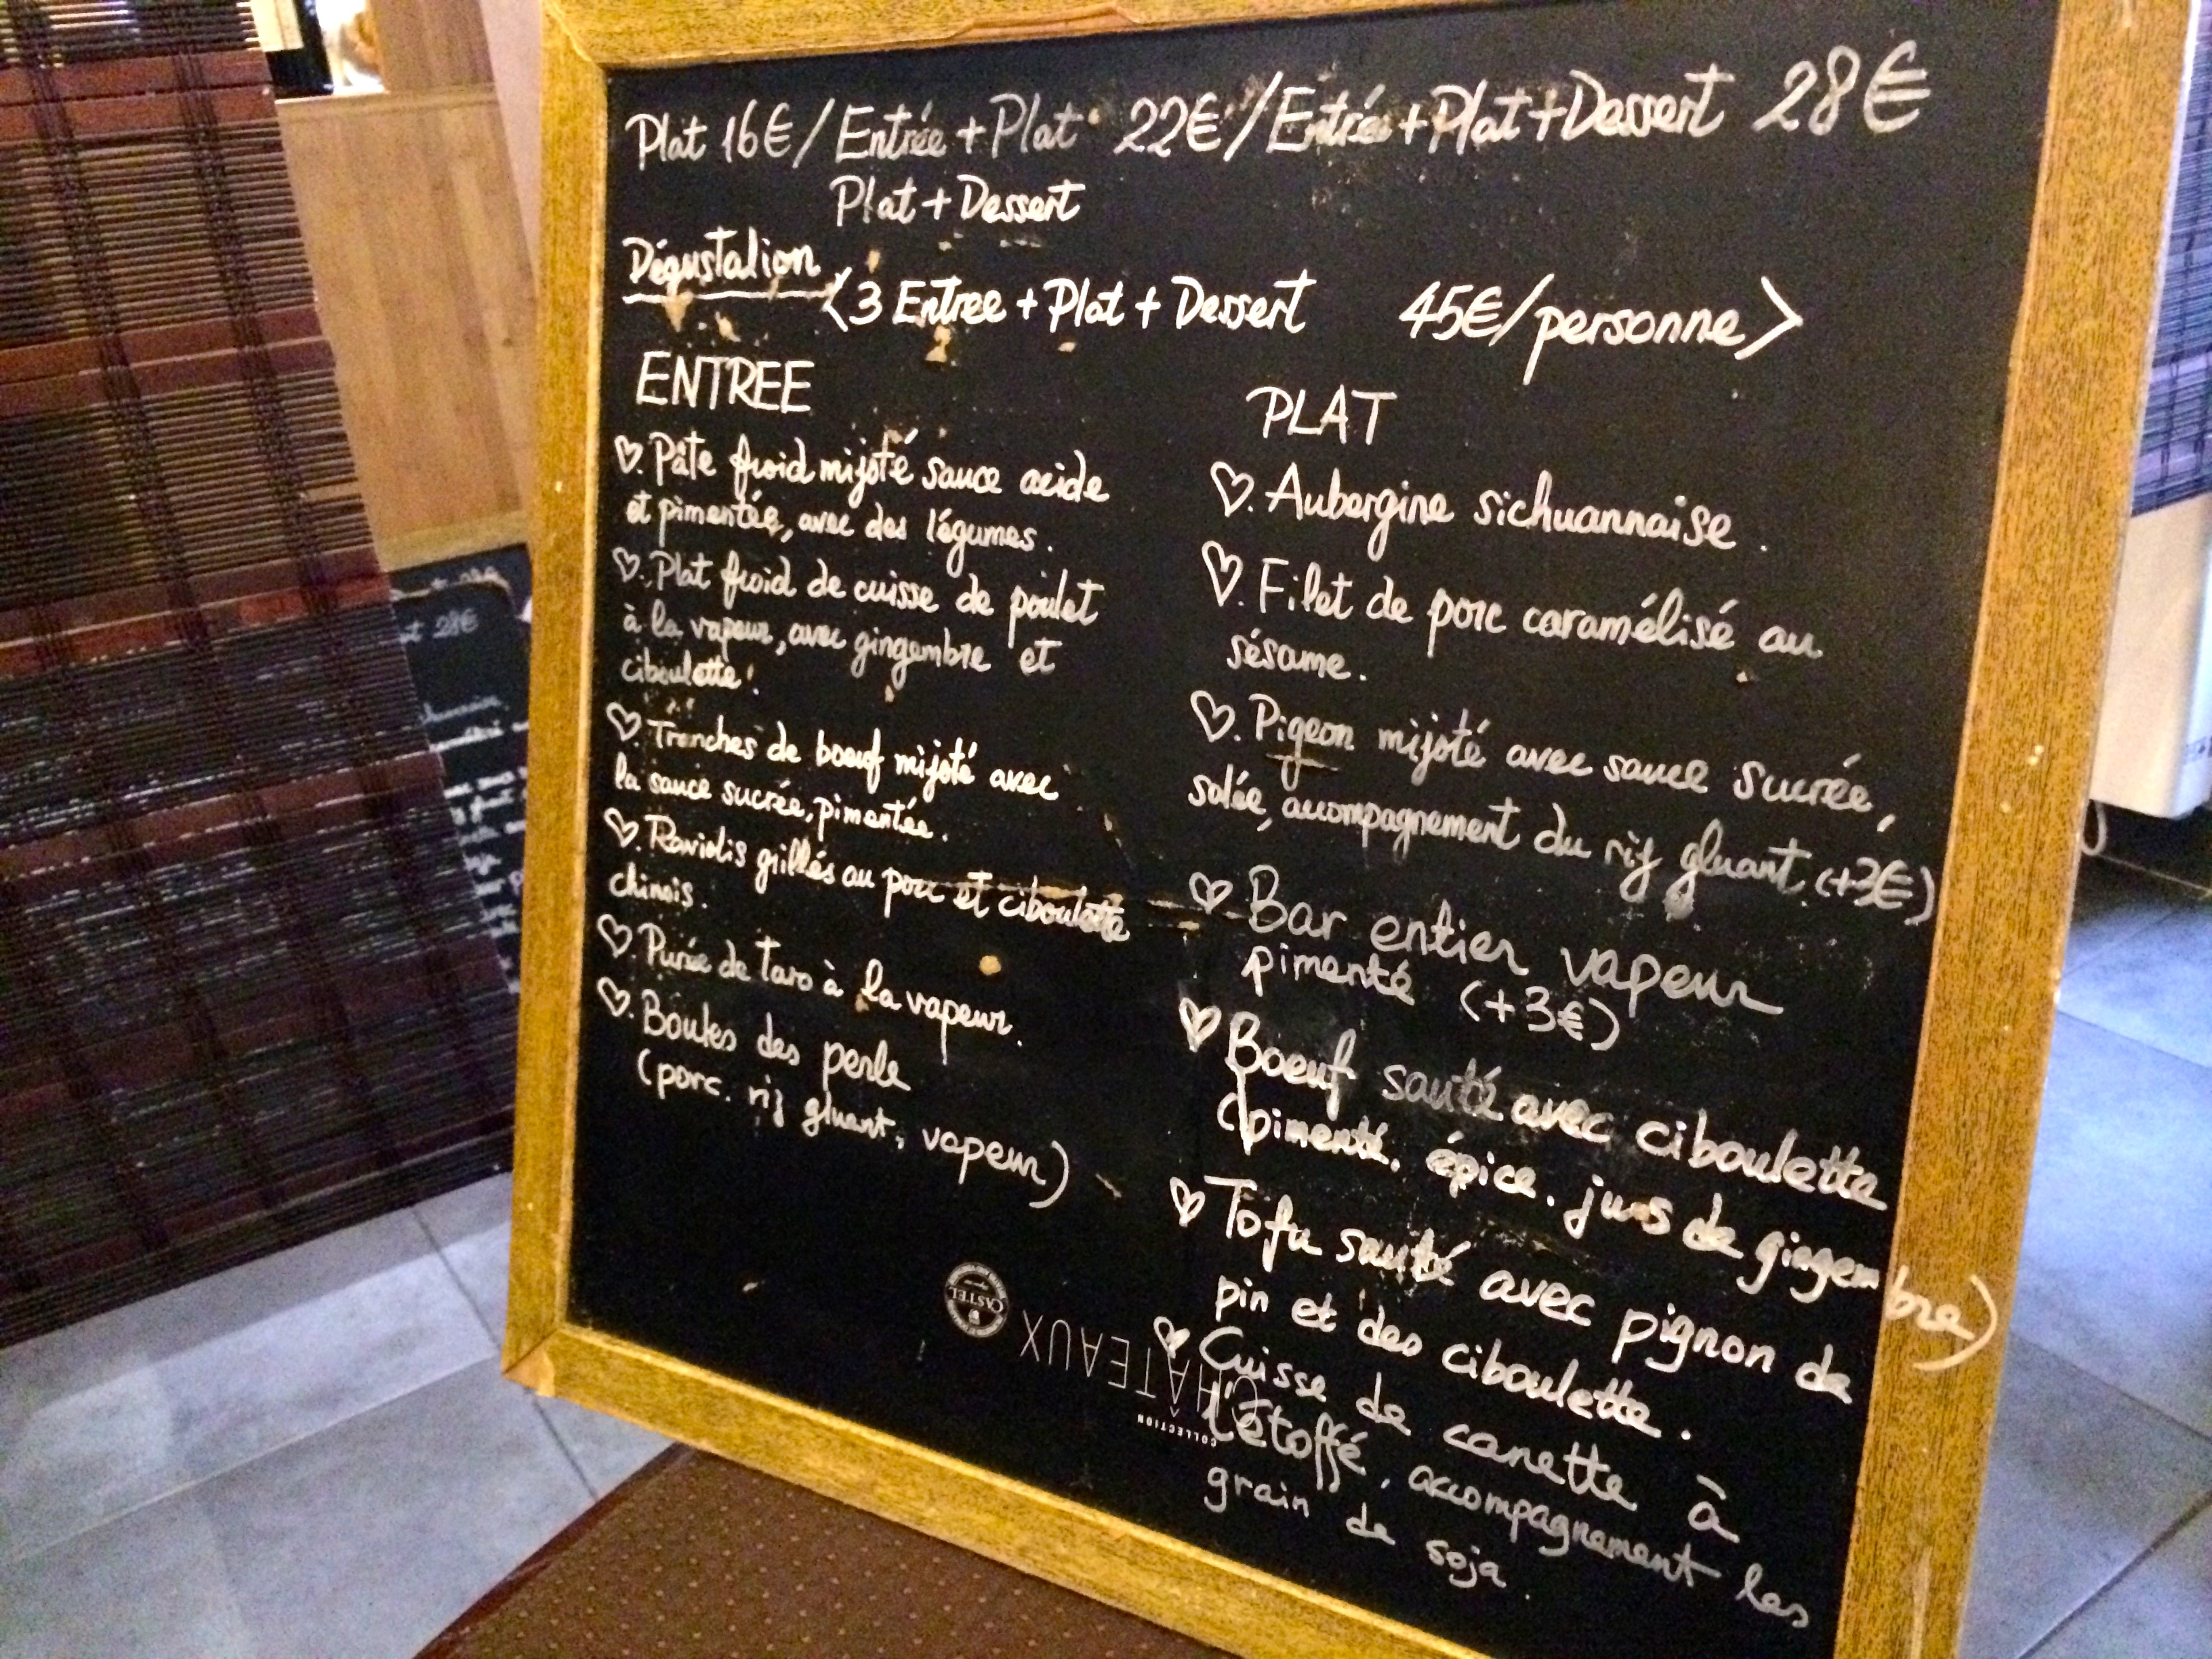 Plat 16€ / Entrée + Plat 22€ / Entrée + Plat + Dessert 28€
Plat + Dessert
Dégustation
<3 Entree + Plat + Dessert 45€/personne>
ENTREE
♡. Pâte froid mijoté sauce acide
et pimentée, avec des légumes.
♡. Plat froid de cuisse de poulet
à la vapeur, avec gingembre et
ciboulette.
♡. Tranches de boeuf mijoté avec
la sauce sucrée, pimentée.
♡. Raviolis grillés au porc et ciboulette
chinois.
♡. Purée de taro à la vapeur.
♡. Boules des perle
(porc. riz gluant, vapeur)
PLAT
♡. Aubergine sichuannaise.
♡. Filet de porc caramélisé au
sésame.
♡. Pigeon mijoté avec sauce sucrée,
salée, accompagnement du riz gluant (+3€)
♡ Bar entier vapeur
pimenté (+3€)
♡ Boeuf sauté avec ciboulette
(pimenté. épice. jus de gingembre)
♡ Tofu sauté avec pignon de
pin et des ciboulette.
♡ Cuisse de canette à
l'étoffé, accompagnement les
grain de soja
CASTEL
CHÂTEAUX
COLLECTION
28€